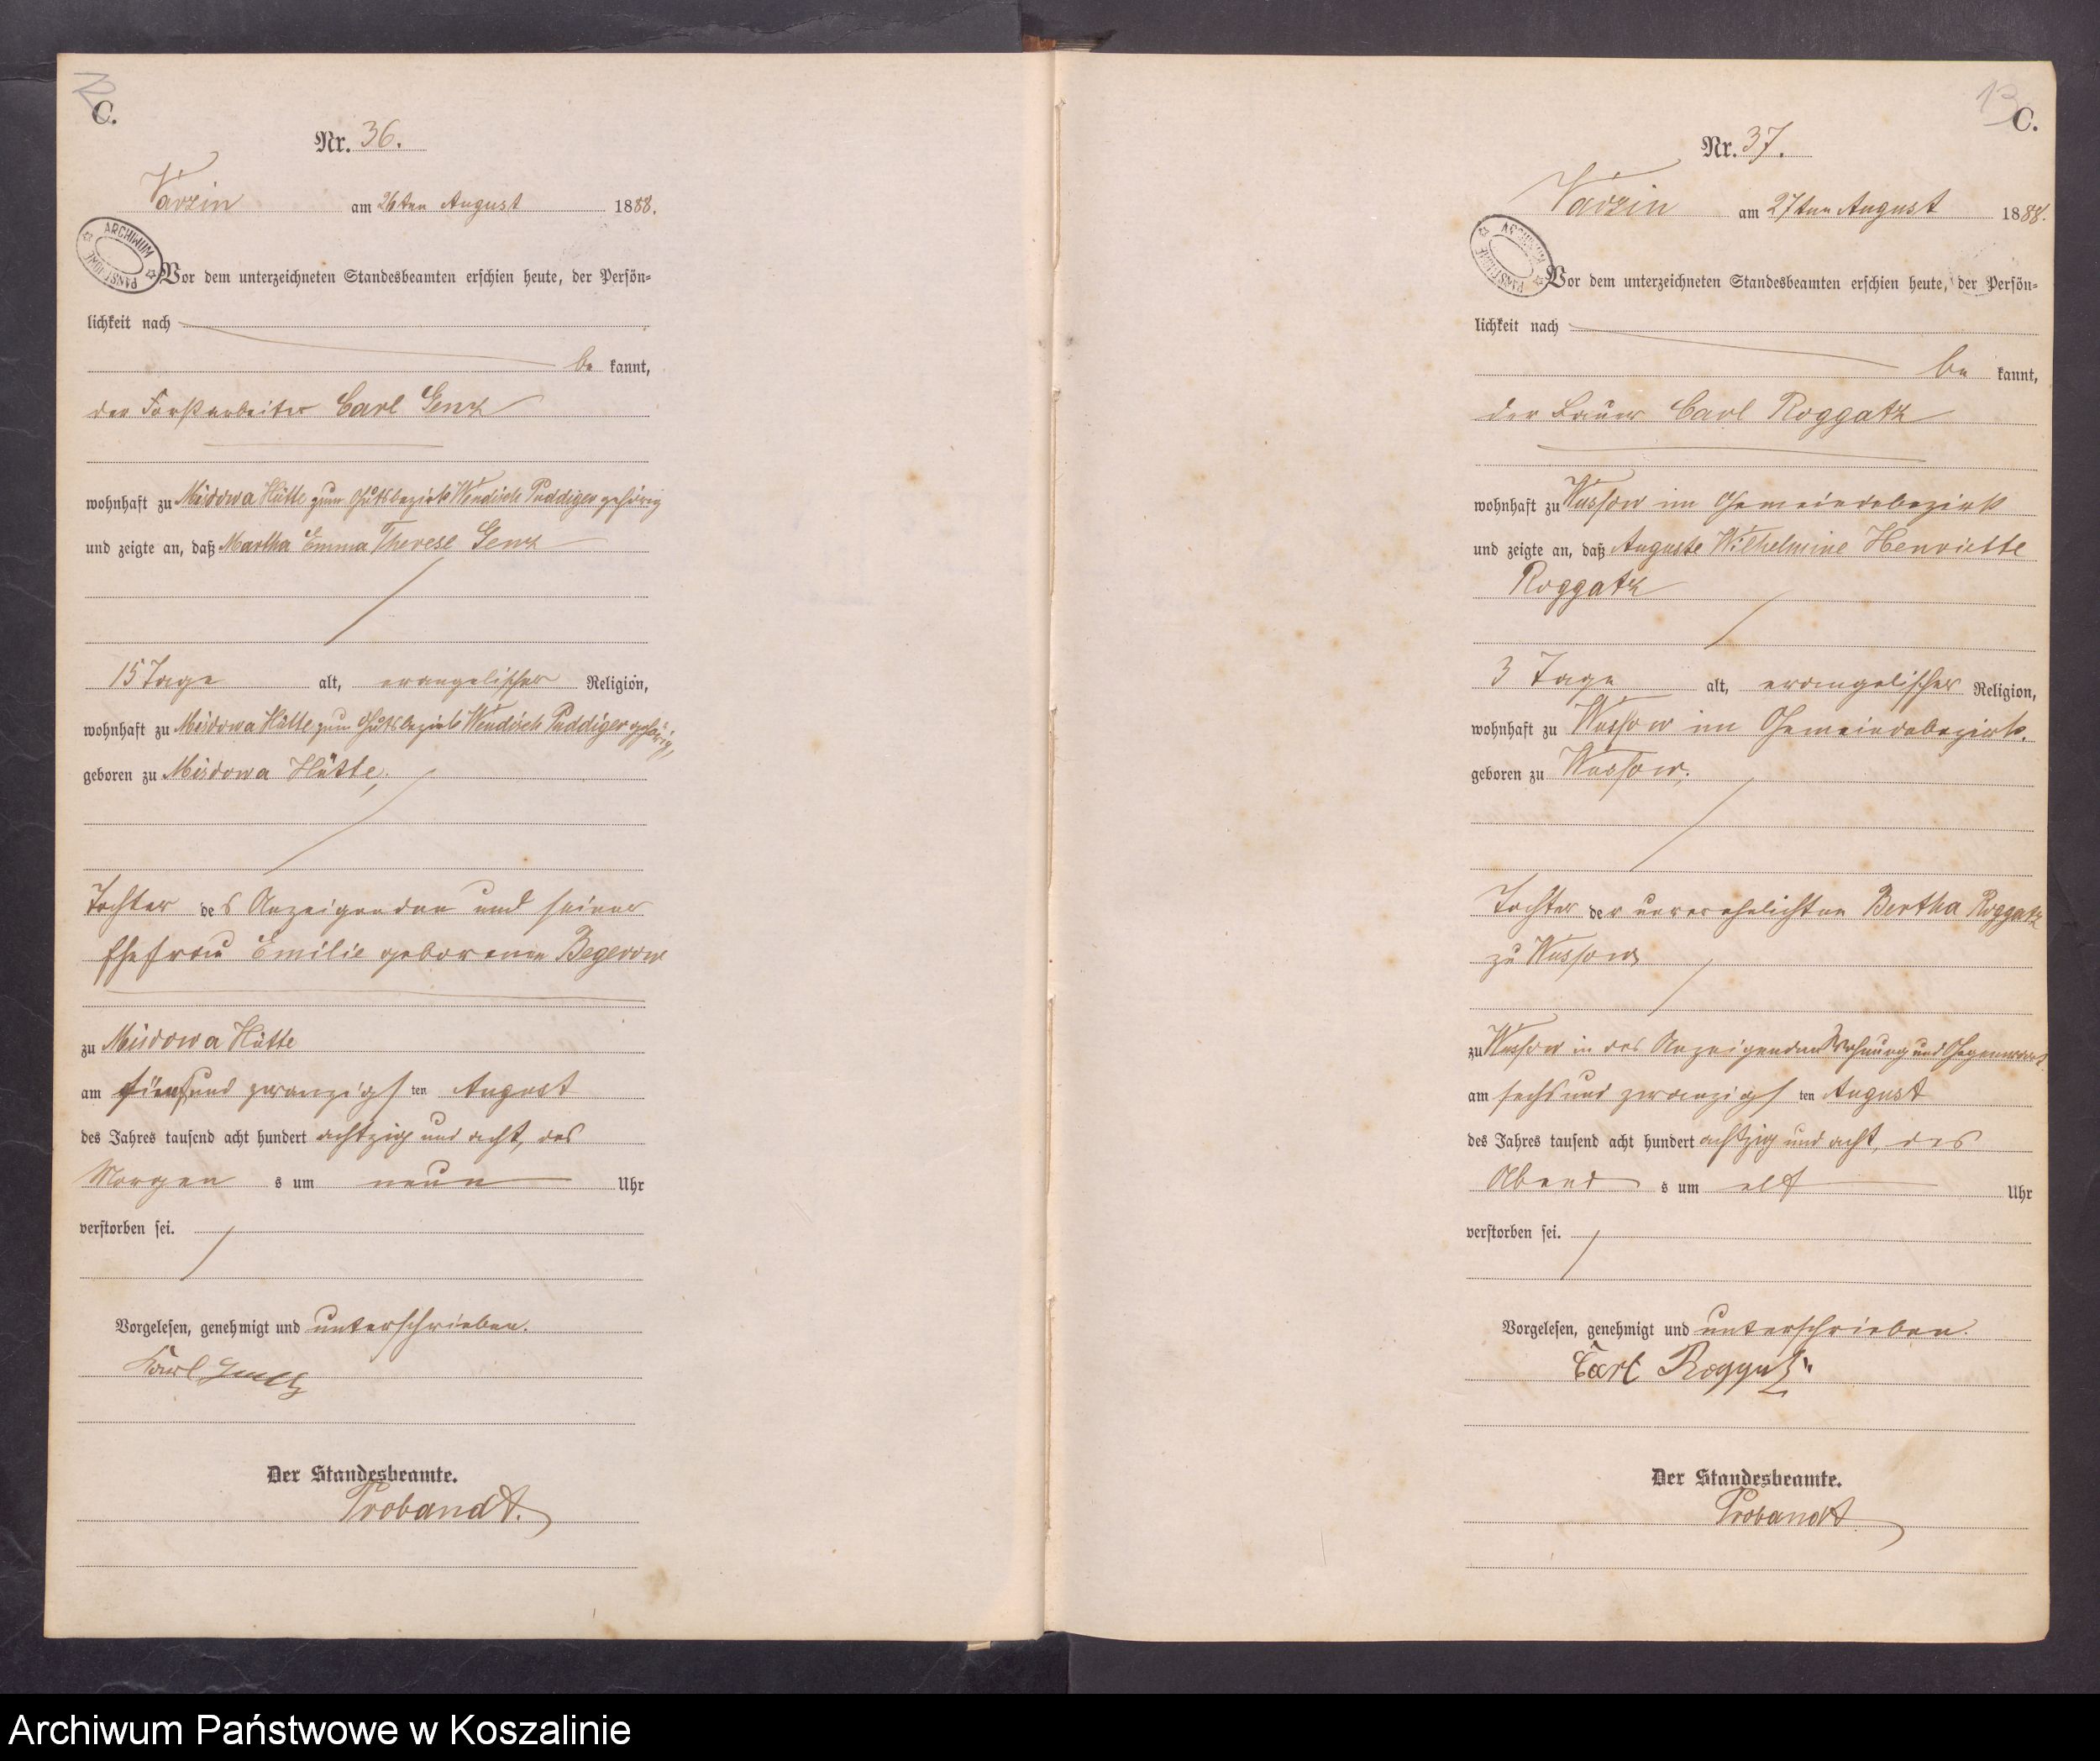 C.
Nr. 36.
Varzin am 26ten August 1888.
ARCHIWUM PAŃSTWOWE
Vor dem unterzeichneten Standesbeamten erschien heute, der Persön-
lichkeit nach
be kannt,
der Forstarbeiter Carl Genz
wohnhaft zu Misdowa Hütte zum Gutsbezirk Wendisch Puddiger gehörig
und zeigte an, daß Martha Emma Therese Genz
15 Tage alt, evangelischer Religion,
wohnhaft zu Misdowa Hütte zum Gutsbezirk Wendisch Puddiger gehörig,
geboren zu Misdowa Hütte,
Tochter des Anzeigenden und seiner
Ehefrau Emilie geborenen Begerow
zu Misdowa Hütte
am fünf und zwanzigsten August
des Jahres tausend acht hundert achtzig und acht, des
Morgens um neun Uhr
verstorben sei.
Vorgelesen, genehmigt und unterschrieben.
Karl
Der Standesbeamte.
Probandt.
13
C.
Nr. 37.
Varzin am 27ten August 1888.
ARCHIWUM PAŃSTWOWE
Vor dem unterzeichneten Standesbeamten erschien heute, der Persön-
lichkeit nach
be kannt,
der Bauer Carl Roggatz
wohnhaft zu Wussow im Gemeindebezirk
und zeigte an, daß Auguste Wilhelmine Henriette
Roggatz
3 Tage alt, evangelischer Religion,
wohnhaft zu Wussow im Gemeindebezirk.
geboren zu Wussow,
Tochter der unverehelichten Bertha Roggatz
zu Wussow
zu Wussow in des Anzeigenden Wohnung und Gegenwart
am sechs und zwanzigsten August
des Jahres tausend acht hundert achtzig und acht, des
Abends um elf Uhr
verstorben sei.
Vorgelesen, genehmigt und unterschrieben.
Carl Roggatz
Der Standesbeamte.
Probandt
Archiwum Państwowe w Koszalinie